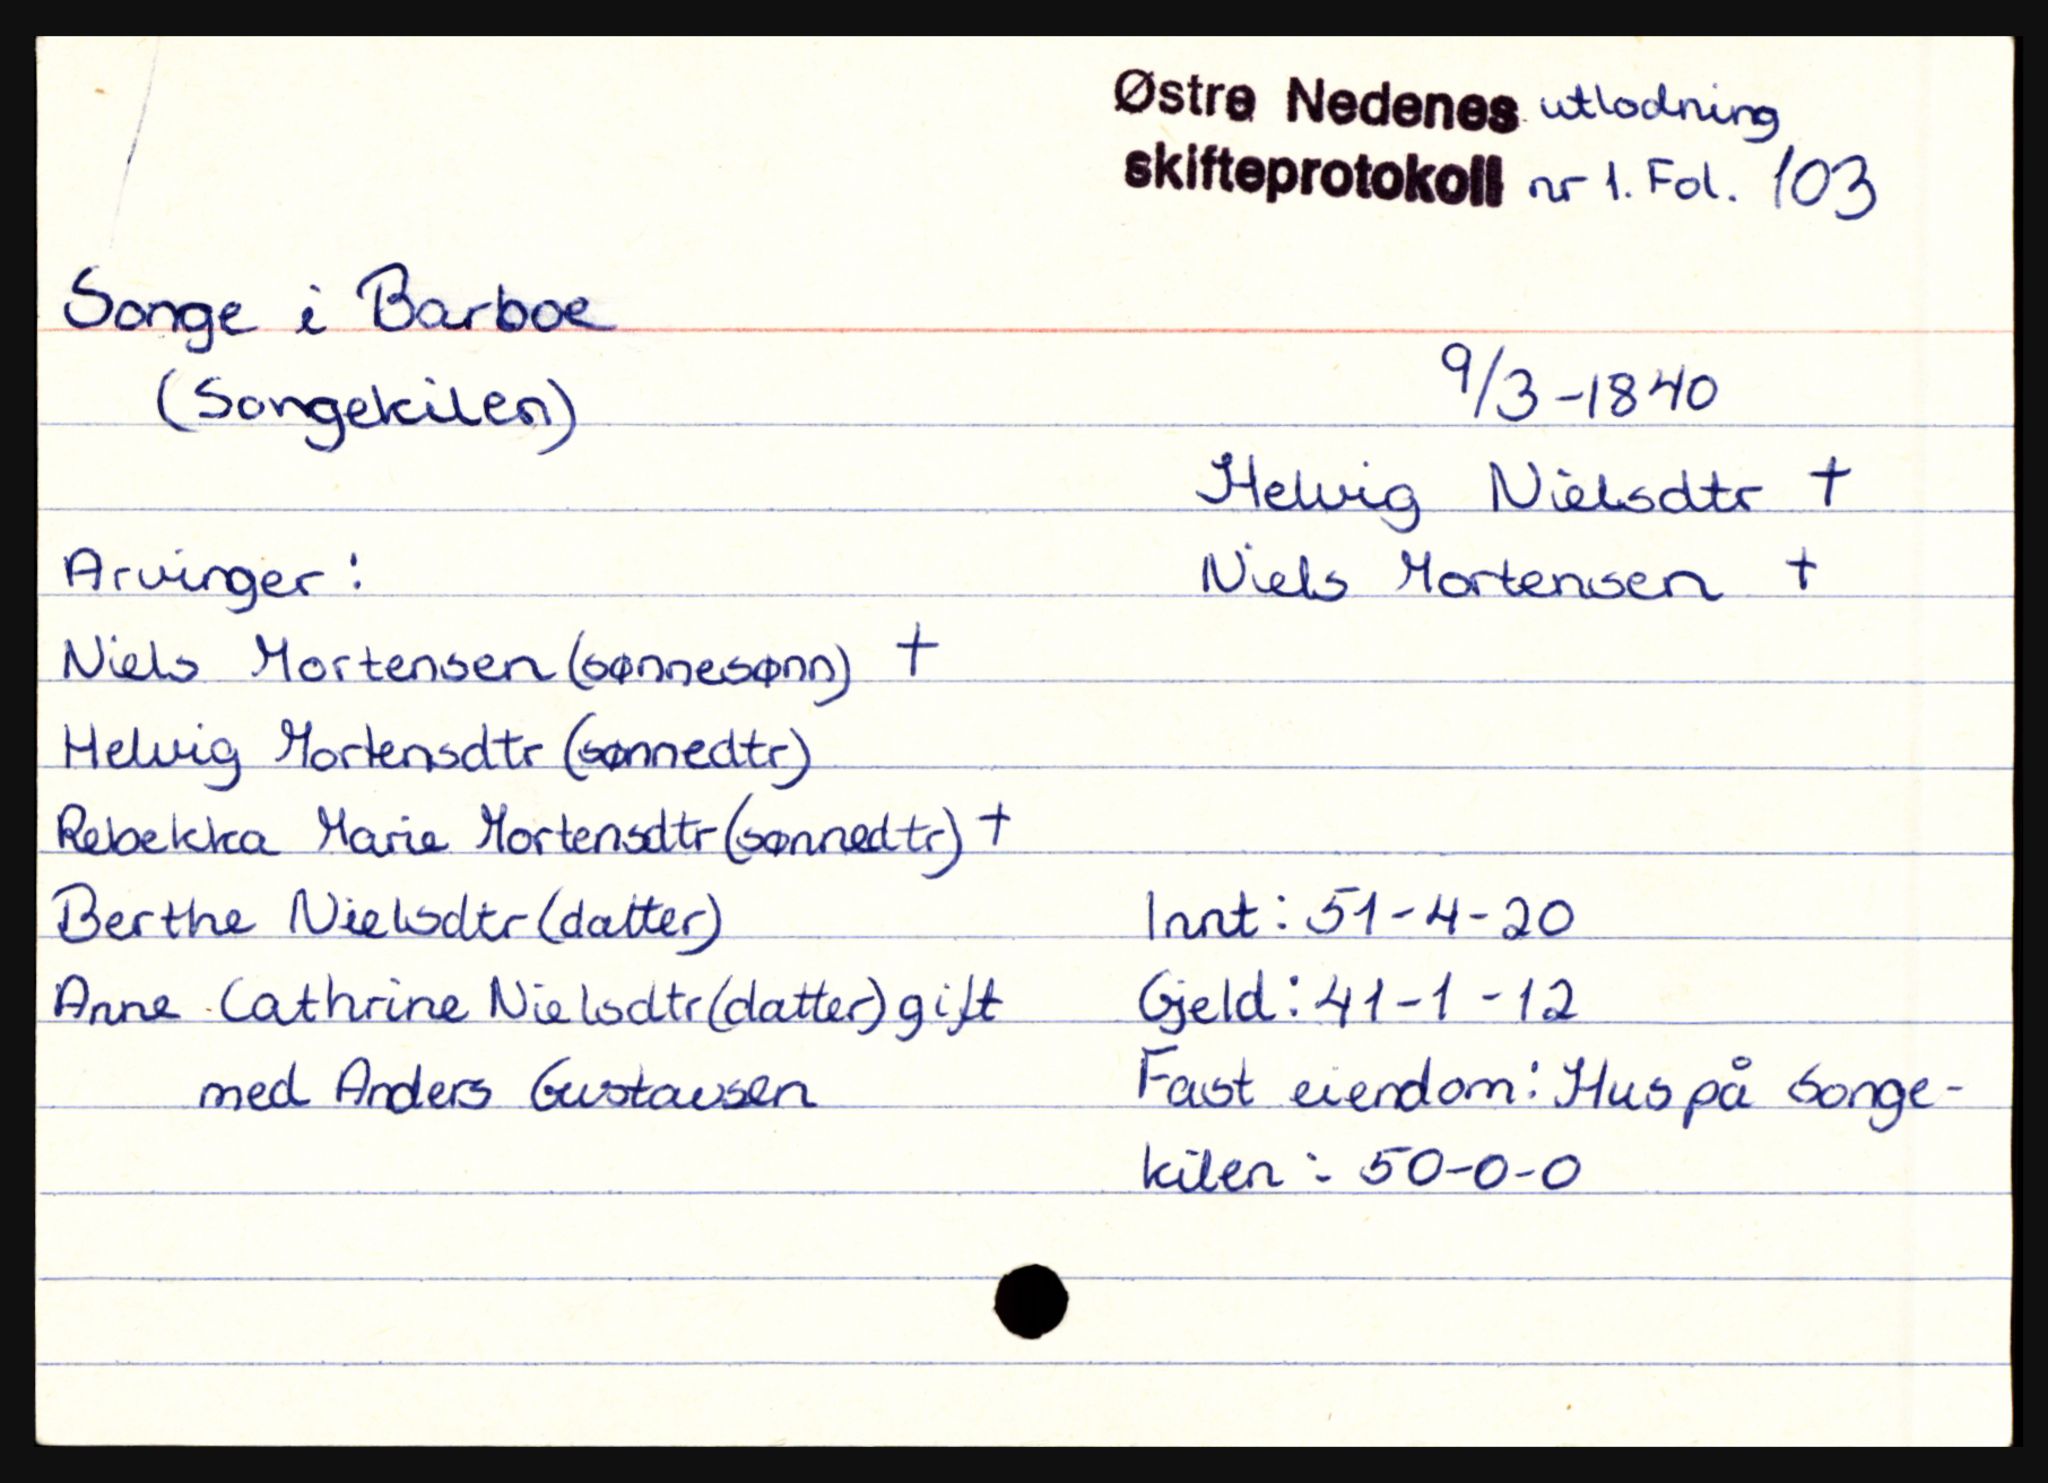 Østre Nedenes utlodning
skifteprotokoll nr 1. Fol. 103
Songe i Barboe
(Songekilen)
9/3-1840
Helvig Nielsdtr †
Niels Mortensen †
Arvinger:
Niels Mortensen (sønnesønn) †
Helvig Mortensdtr (sønnedtr)
Rebekka Marie Mortensdtr (sønnedtr) †
Berthe Nielsdtr (datter)
Anne Cathrine Nielsdtr (datter) gift
med Anders Gustavsen
Innt: 51-4-20
Gjeld: 41-1-12
Fast eiendom: Hus på Songe-
kilen: 50-0-0